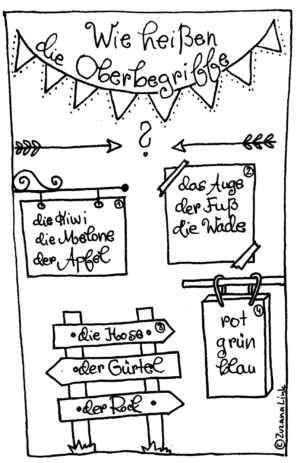 Wie heißen
die Oberbegriffe
?
①
die Kiwi
die Melone
der Apfel
②
das Auge
der Fuß
die Wade
• die Hose • ③
• der Gürtel
• der Rock •
④
rot
grün
blau
©Zuzana Link